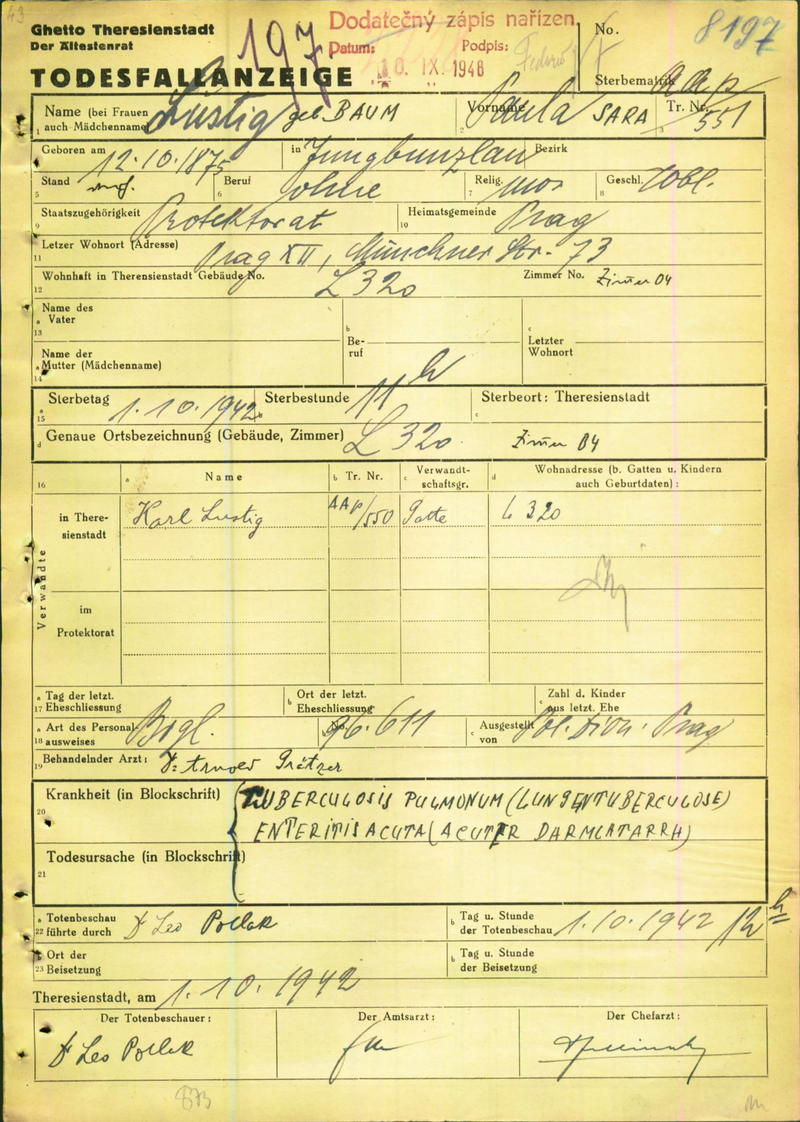 43
Ghetto Theresienstadt
Der Ältestenrat
TODESFALLANZEIGE
197
Dodatečný zápis nařízen.
Datum: Podpis:
10. IX. 1946
No.
8197
Sterbematrik
Name (bei Frauen auch Mädchenname) Lustig geb. BAUM
2 Vorname Paula SARA
3 Tr. Nr. AAp/551
Geboren am 12.10.1875 in Jungbunzlau Bezirk
5 Stand 6 Beruf ohne 7 Relig. mos 8 Geschl.
9 Staatszugehörigkeit Protektorat 10 Heimatsgemeinde Prag
11 Letzer Wohnort (Adresse) Prag XII, Münchner Str. 73
12 Wohnhaft in Theresienstadt Gebäude No. L 320 Zimmer No. Zimmer 04
a 13 Name des Vater
b Beruf
c Letzter Wohnort
a 14 Name der Mutter (Mädchenname)
a 15 Sterbetag 1.10.1942 b Sterbestunde 11 h c Sterbeort: Theresienstadt
d Genaue Ortsbezeichnung (Gebäude, Zimmer) L 320 Zimmer 04
16 a Name b Tr. Nr. c Verwandtschaftsgr. d Wohnadresse (b. Gatten u. Kindern auch Geburtdaten):
Verwandte
in Theresienstadt Karl Lustig AAp/550 Gatte L 320
im Protektorat
a 17 Tag der letzt. Eheschliessung b Ort der letzt. Eheschliessung c Zahl d. Kinder aus letzt. Ehe
a 18 Art des Personalausweises Bzgl. b No. 96.611 c Ausgestellt von Pol. Dion. Prag
19 Behandelnder Arzt: Dr Arnold Grätzer
20 Krankheit (in Blockschrift) TUBERCULOSIS PULMONUM (LUNGENTUBERCULOSE)
ENTERITIS ACUTA (ACUTER DARMCATARRH)
21 Todesursache (in Blockschrift)
a 22 Totenbeschau führte durch Dr Leo Pollak b Tag u. Stunde der Totenbeschau 1.10.1942 12 h
a 23 Ort der Beisetzung b Tag u. Stunde der Beisetzung
Theresienstadt, am 1.10.1942
Der Totenbeschauer: Der Amtsarzt: Der Chefarzt:
Dr Leo Pollak
873